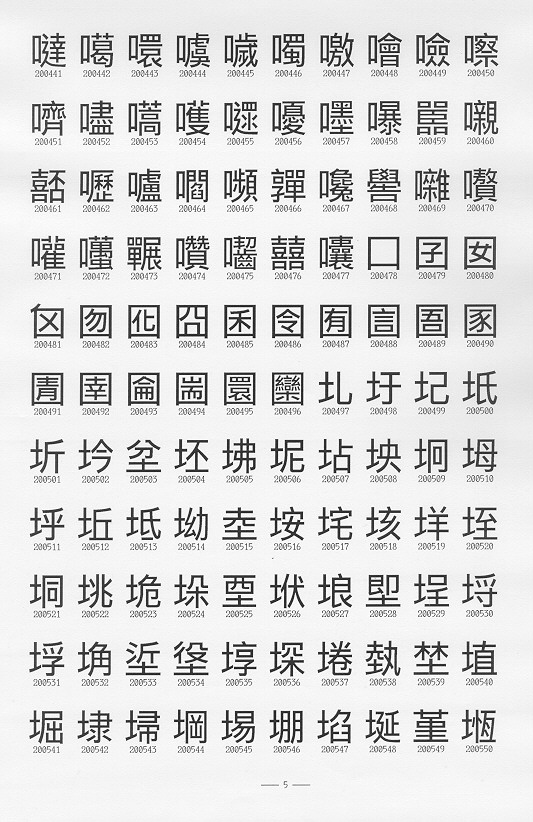 噠 噶 噮 噳 噦 噣 噭 噲 噞 嚓
200441 200442 200443 200444 200445 200446 200447 200448 200449 200450
嚌 嚍 嚆 嚄 嚃 嚘 嚜 嚗 嚚 嚫
200451 200452 200453 200454 200455 200456 200457 200458 200459 200460
嚭 嚦 嚧 嚪 嚬 嚲 嚵 嚳 囃
200461 200462 200463 200464 200465 200466 200467 200468 200469 200470
嚾 囅 囋 囓 囍 囔 囗 囝 囡
200471 200472 200473 200474 200475 200476 200477 200478 200479 200480
囫 囮 囧 囷 囹 囿 圁 圄 圂
200481 200482 200483 200484 200485 200486 200487 200488 200489 200490
圊 圉 圇 圌 圜 圞 圠 圩 圮 坁
200491 200492 200493 200494 200495 200496 200497 200498 200499 200500
圻 坅 坌 坯 坲 坭 坫 坱 坰 坶
200501 200502 200503 200504 200505 200506 200507 200508 200509 200510
垀 坵 坻 坳 坴 垵 垞 垓 垟 垤
200511 200512 200513 200514 200515 200516 200517 200518 200519 200520
垌 垗 垝 垛 垔 垘 埌 埕 埒
200521 200522 200523 200524 200525 200526 200527 200528 200529 200530
垺 埆 垼 埻 埢 埶 埜 埴
200531 200532 200533 200534 200535 200536 200537 200538 200539 200540
堀 埭 埽 堈 埸 堋 埳 埏 堇 堩
200541 200542 200543 200544 200545 200546 200547 200548 200549 200550
— 5 —